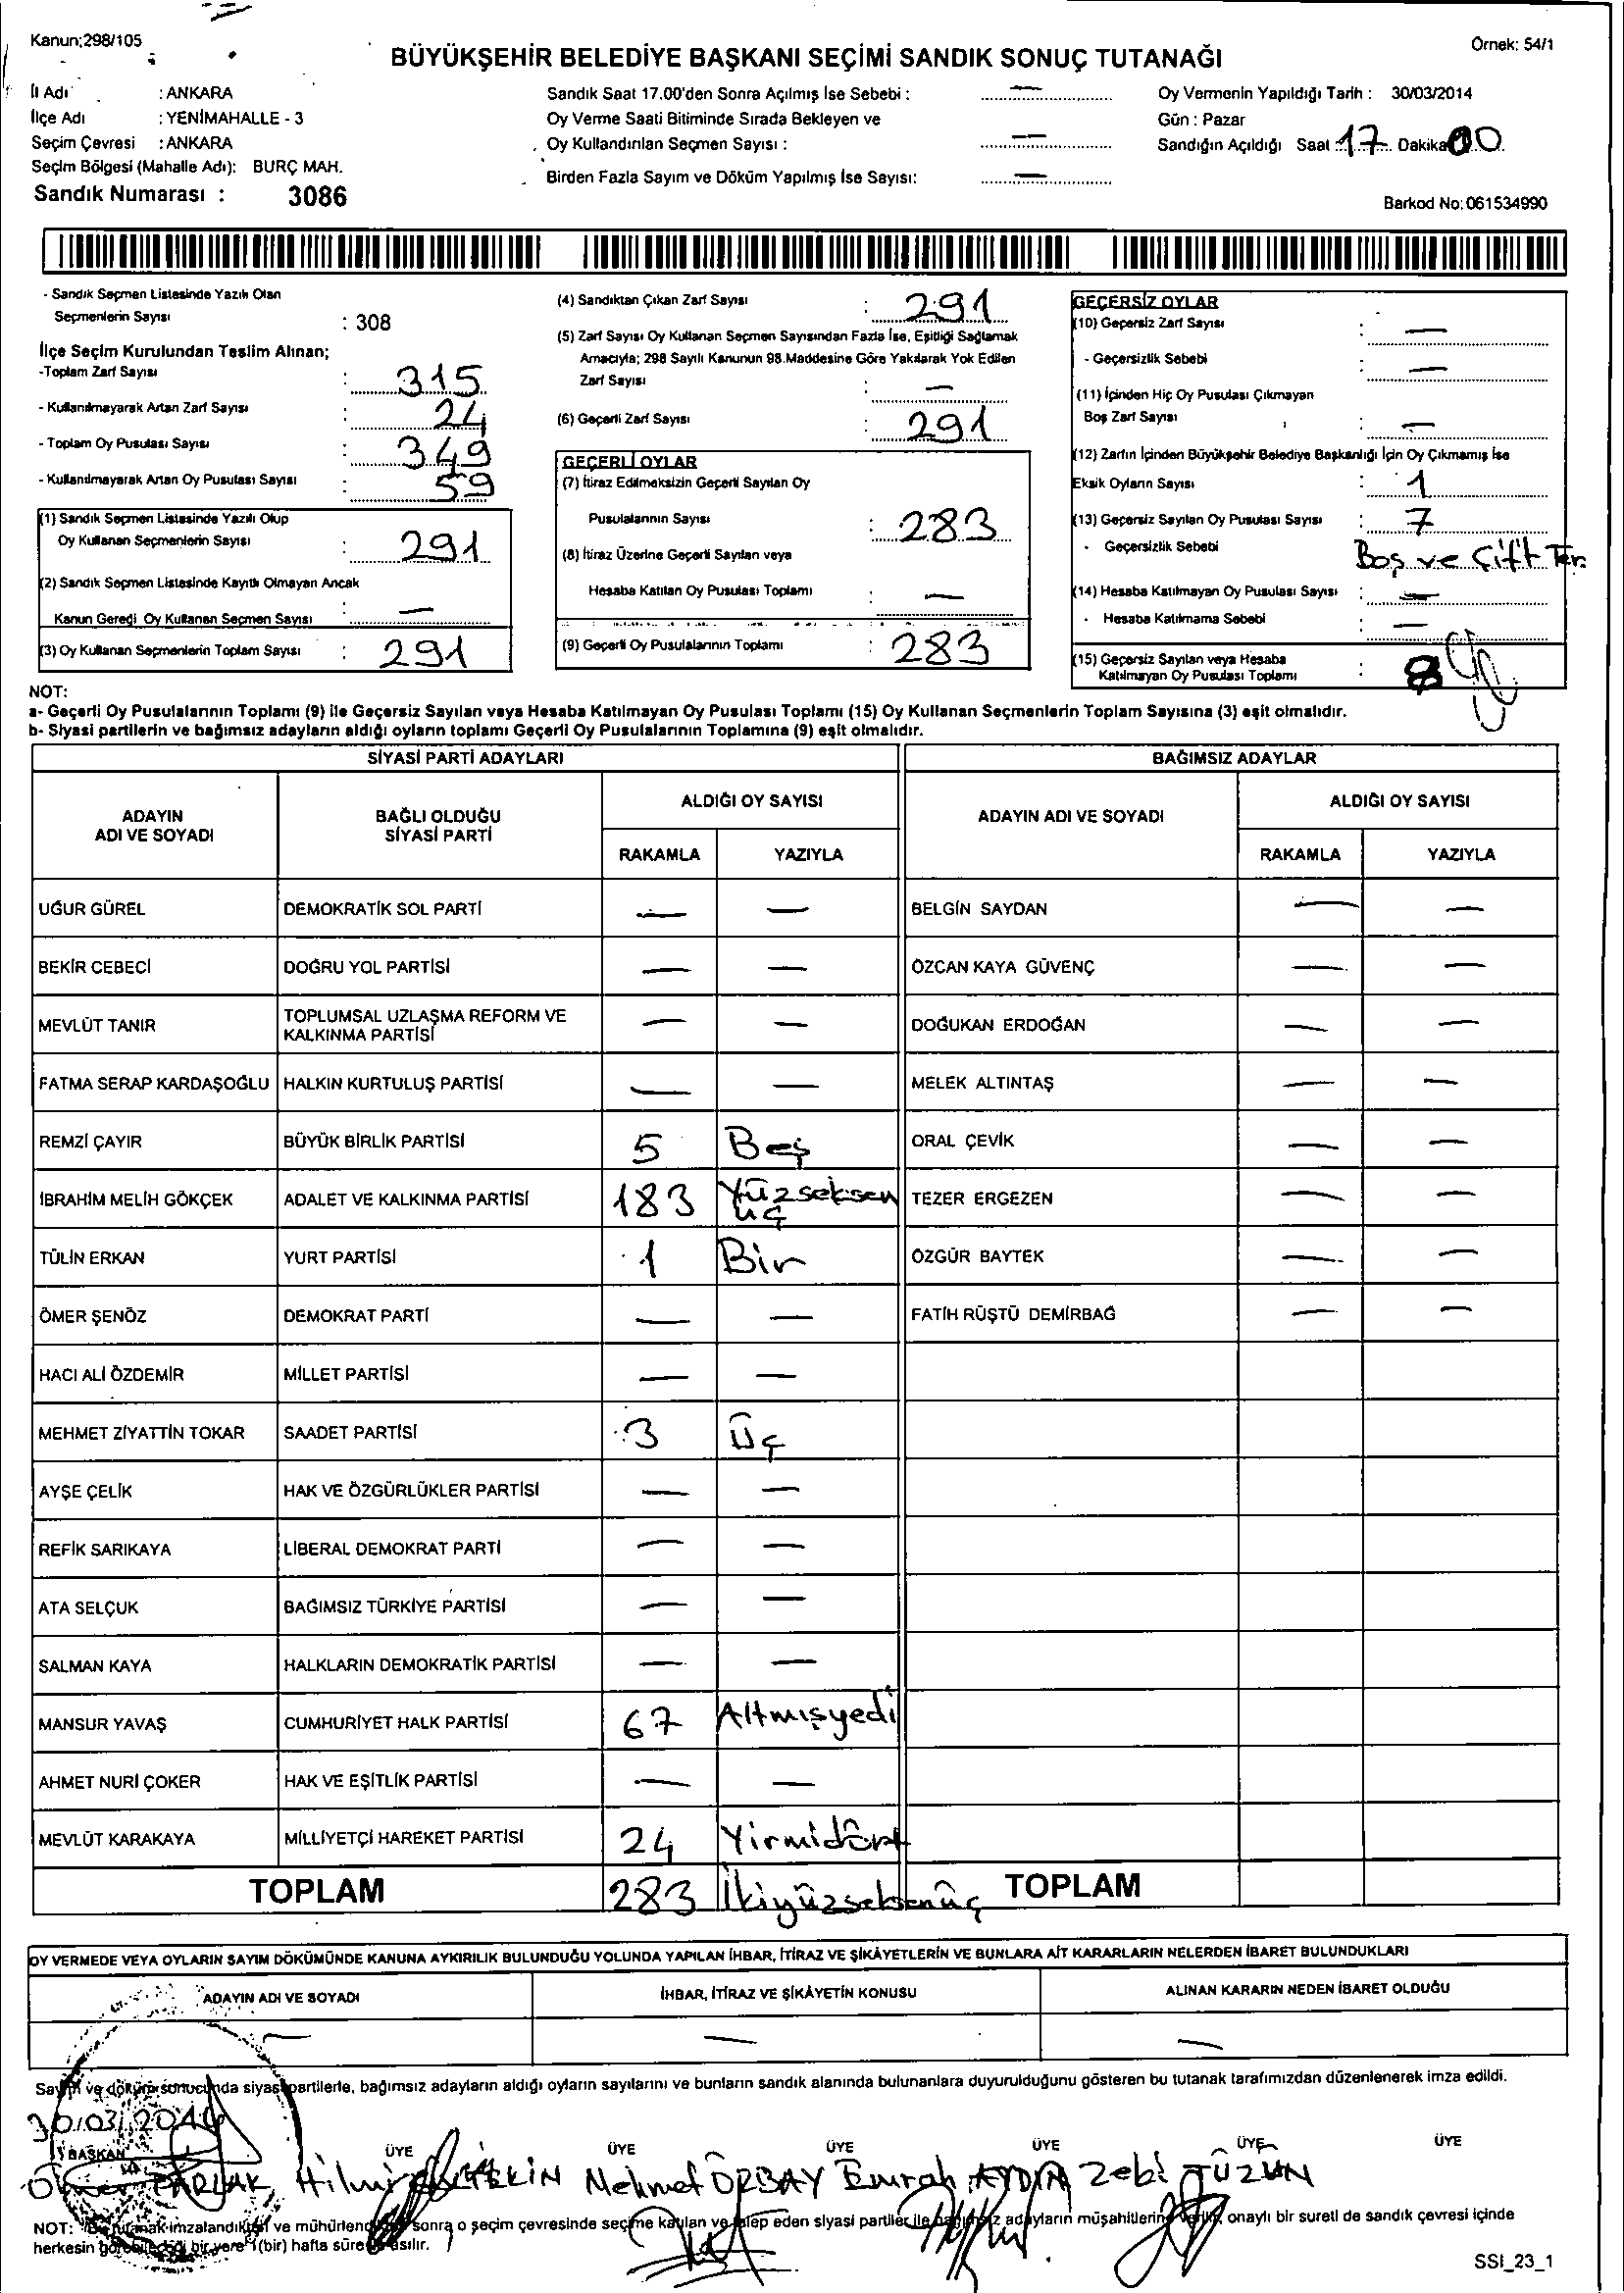 Kanun;298/105
Örnek: 54/1
BÜYÜKŞEHİR BELEDİYE BAŞKANI SEÇİMİ SANDIK SONUÇ TUTANAĞI
İl Adı : ANKARA
İlçe Adı : YENİMAHALLE - 3
Seçim Çevresi : ANKARA
Seçim Bölgesi (Mahalle Adı): BURÇ MAH.
Sandık Numarası : 3086
Sandık Saat 17.00'den Sonra Açılmış İse Sebebi : —
Oy Verme Saati Bitiminde Sırada Bekleyen ve
Oy Kullandırılan Seçmen Sayısı : —
Birden Fazla Sayım ve Döküm Yapılmış İse Sayısı: —
Oy Vermenin Yapıldığı Tarih : 30/03/2014
Gün : Pazar
Sandığın Açıldığı Saat 17 Dakika 00
Barkod No: 061534990
- Sandık Seçmen Listesinde Yazılı Olan
Seçmenlerin Sayısı : 308
İlçe Seçim Kurulundan Teslim Alınan;
-Toplam Zarf Sayısı : 315
- Kullanılmayarak Artan Zarf Sayısı : 24
- Toplam Oy Pusulası Sayısı : 349
- Kullanılmayarak Artan Oy Pusulası Sayısı : 59
(1) Sandık Seçmen Listesinde Yazılı Olup
Oy Kullanan Seçmenlerin Sayısı : 291
(2) Sandık Seçmen Listesinde Kayıtlı Olmayan Ancak
Kanun Gereği Oy Kullanan Seçmen Sayısı : —
(3) Oy Kullanan Seçmenlerin Toplam Sayısı : 291
(4) Sandıktan Çıkan Zarf Sayısı : 291
(5) Zarf Sayısı Oy Kullanan Seçmen Sayısından Fazla İse, Eşitliği Sağlamak
Amacıyla; 298 Sayılı Kanunun 98.Maddesine Göre Yakılarak Yok Edilen
Zarf Sayısı : —
(6) Geçerli Zarf Sayısı : 291
GEÇERLİ OYLAR
(7) İtiraz Edilmeksizin Geçerli Sayılan Oy
Pusulalarının Sayısı : 283
(8) İtiraz Üzerine Geçerli Sayılan veya
Hesaba Katılan Oy Pusulası Toplamı : —
(9) Geçerli Oy Pusulalarının Toplamı : 283
GEÇERSİZ OYLAR
(10) Geçersiz Zarf Sayısı : —
- Geçersizlik Sebebi : —
(11) İçinden Hiç Oy Pusulası Çıkmayan
Boş Zarf Sayısı : —
(12) Zarfın İçinden Büyükşehir Belediye Başkanlığı İçin Oy Çıkmamış İse
Eksik Oyların Sayısı : 1
(13) Geçersiz Sayılan Oy Pusulası Sayısı : 7
- Geçersizlik Sebebi Boş ve Çift Ter.
(14) Hesaba Katılmayan Oy Pusulası Sayısı : —
- Hesaba Katılmama Sebebi : —
(15) Geçersiz Sayılan veya Hesaba
Katılmayan Oy Pusulası Toplamı : 8
NOT:
a- Geçerli Oy Pusulalarının Toplamı (9) ile Geçersiz Sayılan veya Hesaba Katılmayan Oy Pusulası Toplamı (15) Oy Kullanan Seçmenlerin Toplam Sayısına (3) eşit olmalıdır.
b- Siyasi partilerin ve bağımsız adayların aldığı oyların toplamı Geçerli Oy Pusulalarının Toplamına (9) eşit olmalıdır.
SİYASİ PARTİ ADAYLARI
BAĞIMSIZ ADAYLAR
ADAYIN
ADI VE SOYADI
BAĞLI OLDUĞU
SİYASİ PARTİ
ALDIĞI OY SAYISI
RAKAMLA YAZIYLA
ADAYIN ADI VE SOYADI
ALDIĞI OY SAYISI
RAKAMLA YAZIYLA
UĞUR GÜREL DEMOKRATİK SOL PARTİ — — BELGİN SAYDAN — —
BEKİR CEBECİ DOĞRU YOL PARTİSİ — — ÖZCAN KAYA GÜVENÇ — —
MEVLÜT TANIR TOPLUMSAL UZLAŞMA REFORM VE
KALKINMA PARTİSİ — — DOĞUKAN ERDOĞAN — —
FATMA SERAP KARDAŞOĞLU HALKIN KURTULUŞ PARTİSİ — — MELEK ALTINTAŞ — —
REMZİ ÇAYIR BÜYÜK BİRLİK PARTİSİ 5 Beş ORAL ÇEVİK — —
İBRAHİM MELİH GÖKÇEK ADALET VE KALKINMA PARTİSİ 183 Yüzseksen
üç TEZER ERGEZEN — —
TÜLİN ERKAN YURT PARTİSİ 1 Bir ÖZGÜR BAYTEK — —
ÖMER ŞENÖZ DEMOKRAT PARTİ — — FATİH RÜŞTÜ DEMİRBAĞ — —
HACI ALİ ÖZDEMİR MİLLET PARTİSİ — —
MEHMET ZİYATTİN TOKAR SAADET PARTİSİ 3 Üç
AYŞE ÇELİK HAK VE ÖZGÜRLÜKLER PARTİSİ — —
REFİK SARIKAYA LİBERAL DEMOKRAT PARTİ — —
ATA SELÇUK BAĞIMSIZ TÜRKİYE PARTİSİ — —
SALMAN KAYA HALKLARIN DEMOKRATİK PARTİSİ — —
MANSUR YAVAŞ CUMHURİYET HALK PARTİSİ 67 Altmışyedi
AHMET NURİ ÇOKER HAK VE EŞİTLİK PARTİSİ — —
MEVLÜT KARAKAYA MİLLİYETÇİ HAREKET PARTİSİ 24 Yirmidört
TOPLAM 283 İkiyüzseksenüç TOPLAM
OY VERMEDE VEYA OYLARIN SAYIM DÖKÜMÜNDE KANUNA AYKIRILIK BULUNDUĞU YOLUNDA YAPILAN İHBAR, İTİRAZ VE ŞİKÂYETLERİN VE BUNLARA AİT KARARLARIN NELERDEN İBARET BULUNDUKLARI
ADAYIN ADI VE SOYADI İHBAR, İTİRAZ VE ŞİKÂYETİN KONUSU ALINAN KARARIN NEDEN İBARET OLDUĞU
— — —
Sayım ve döküm sonucunda siyasi partilerle, bağımsız adayların aldığı oyların sayılarını ve bunların sandık alanında bulunanlara duyurulduğunu gösteren bu tutanak tarafımızdan düzenlenerek imza edildi.
30/03/2014
BAŞKAN ÜYE ÜYE ÜYE ÜYE ÜYE ÜYE
PARLAK Hilmi Mehmet ÖZBAY Emrah AYDIN Zeki TÜZÜN
NOT: Bu tutanak imzalandıktan ve mühürlendikten sonra o seçim çevresinde seçime katılan ve talep eden siyasi partiler ile bağımsız adayların müşahitlerine verilir, onaylı bir sureti de sandık çevresi içinde
herkesin görebileceği bir yere 1(bir) hafta süreyle asılır.
SSI_23_1